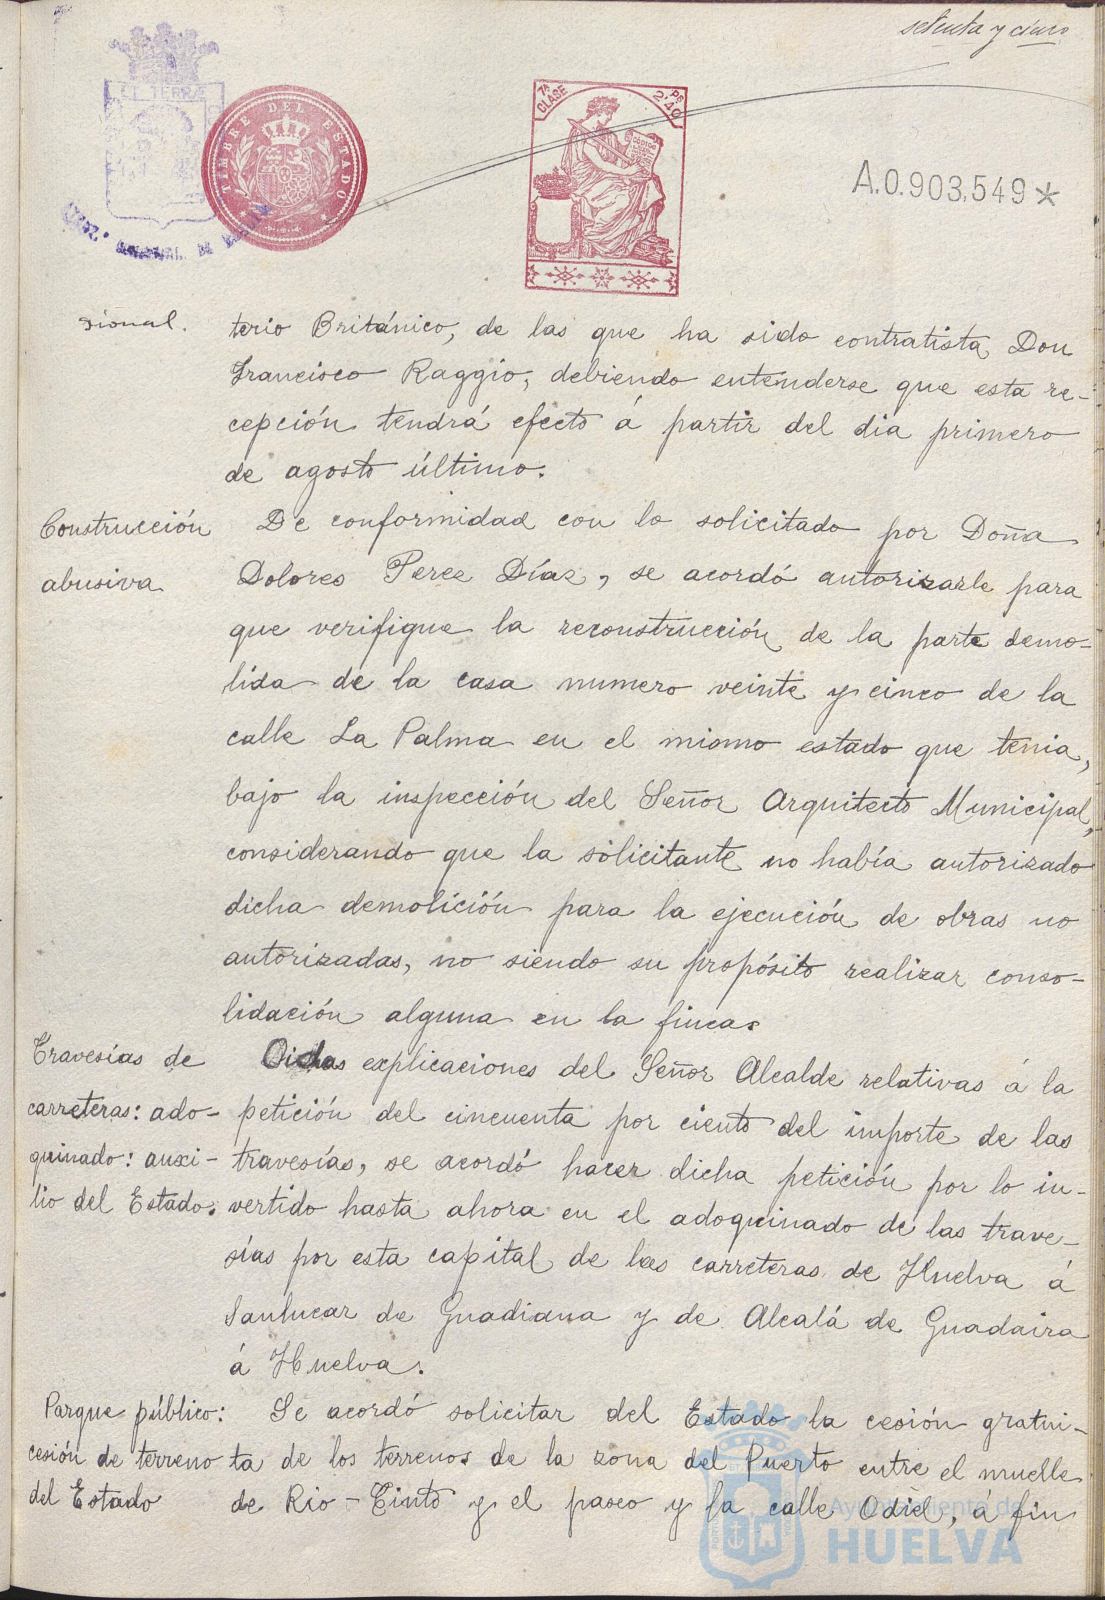 setenta y cinco
ET TERRÆ
TIMBRE DEL ESTADO
7ª CLASE
PS 2'40
CÓDIGO
A.0.903,549*
sional.
terio Británico, de las que ha sido contratista Don
Francisco Raggio, debiendo entenderse que esta re-
cepción tendrá efecto á partir del dia primero
de agosto último.
Construcción
abusiva
De conformidad con lo solicitado por Doña
Dolores Perez Díaz, se acordó autorizarle para
que verifique la reconstrucción de la parte demo-
lida de la casa numero veinte y cinco de la
calle La Palma en el mismo estado que tenia,
bajo la inspección del Señor Arquitecto Municipal,
considerando que la solicitante no había autorizado
dicha demolición para la ejecución de obras no
autorizadas, no siendo su propósito realizar conso-
lidación alguna en la finca.
Travesías de
carreteras: ado-
quinado: auxi-
lio del Estado.
Oidas explicaciones del Señor Alcalde relativas á la
petición del cincuenta por ciento del importe de las
travesías, se acordó hacer dicha petición por lo in-
vertido hasta ahora en el adoquinado de las trave-
sías por esta capital de las carreteras de Huelva á
Sanlucar de Guadiana y de Alcalá de Guadaira
á Huelva.
Parque público:
cesión de terreno
del Estado
Se acordó solicitar del Estado la cesión gratui-
ta de los terrenos de la zona del Puerto entre el muelle
de Rio-Tinto y el paseo y la calle Odiel, á fin
Ayuntamiento de
HUELVA